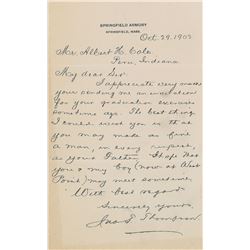 SPRINGFIELD ARMORY
SPRINGFIELD, MASS.
Oct. 29. 1903
Mr. Albert H. Cole
Peru, Indiana
My dear Sir:
I appreciate very much
your sending me an invitation
for your graduation exercises
sometime ago. The best thing
I could wish you is that
you may make as fine
a man, in every respect,
as your Father. I hope that
you & my boy (now at West
Point) may meet sometime.
With best regards
Sincerely Yours,
Jno. T. Thompson